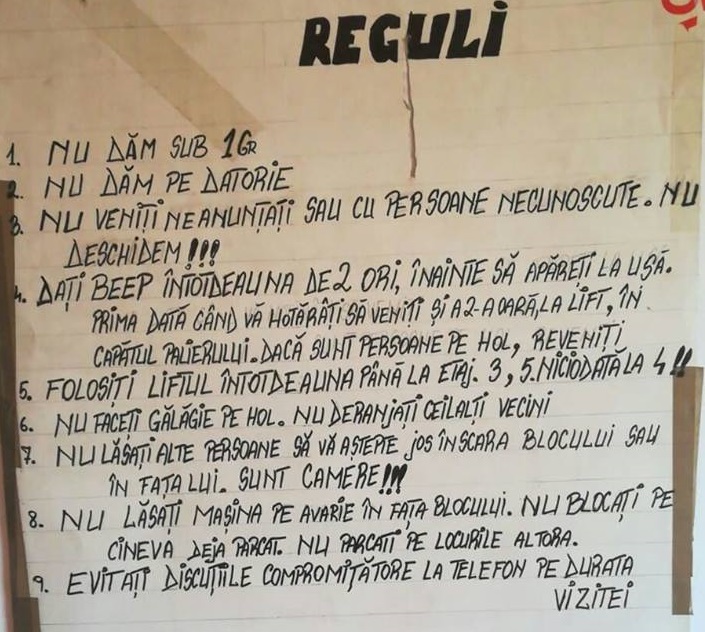 REGULI
1. NU DĂM SUB 1GR
2. NU DĂM PE DATORIE
3. NU VENIȚI NEANUNȚAȚI SAU CU PERSOANE NECUNOSCUTE. NU
DESCHIDEM!!!
4. DAȚI BEEP ÎNTOTDEAUNA DE 2 ORI, ÎNAINTE SĂ APĂREȚI LA UȘĂ.
PRIMA DATĂ CÂND VĂ HOTĂRÂȚI SĂ VENITI ȘI A 2-A OARĂ, LA LIFT, ÎN
CAPĂTUL PALIERULUI. DACĂ SUNT PERSOANE PE HOL, REVENIȚI
5. FOLOSIȚI LIFTUL ÎNTOTDEAUNA PÂNĂ LA ETAJ. 3, 5. NICIODATĂ LA 4!!
6. NU FACEȚI GĂLĂGIE PE HOL. NU DERANJAȚI CEILALȚI VECINI
7. NU LĂSAȚI ALTE PERSOANE SĂ VĂ AȘTEPTE JOS ÎN SCARA BLOCULUI SAU
ÎN FAȚA LUI. SUNT CAMERE!!!
8. NU LĂSAȚI MAȘINA PE AVARIE ÎN FAȚA BLOCULUI. NU BLOCAȚI PE
CINEVA DEJA PARCAT. NU PARCATI PE LOCURILE ALTORA.
9. EVITAȚI DISCUȚIILE COMPROMIȚĂTOARE LA TELEFON PE DURATA
VIZITEI